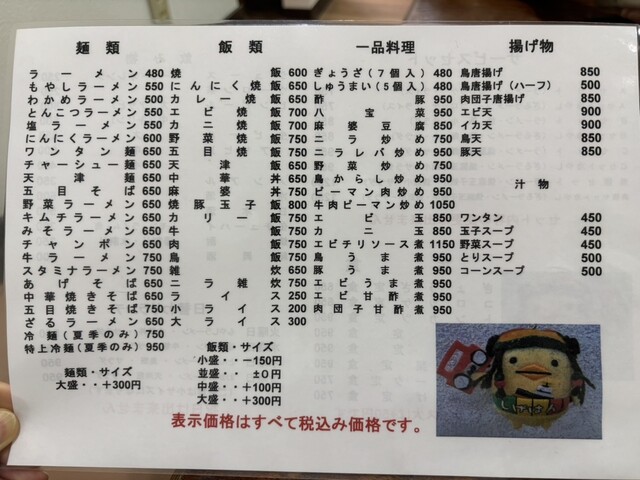 麺類
ラーメン 480
もやしラーメン 550
わかめラーメン 500
とんこつラーメン 550
塩ラーメン 500
にんにくラーメン 600
ワンタン麺 650
チャーシュー麺 650
天津麺 650
五目そば 650
野菜ラーメン 650
キムチラーメン 650
みそラーメン 650
チャンポン 650
牛ラーメン 750
スタミナラーメン 750
あげそば 650
中華焼きそば 650
五目焼きそば 750
ざるラーメン 650
冷麺(夏季のみ) 750
特上冷麺(夏季のみ) 950
麺類・サイズ
大盛・・+300円
飯類
焼飯 600
にんにく焼飯 650
カレー焼飯 650
エビ焼飯 700
カニ焼飯 700
野菜焼飯 650
五目焼飯 700
天津飯 650
中華丼 650
麻婆丼 750
焼豚玉子飯 800
カリー飯 750
牛飯 750
肉飯 750
鳥飯 750
雑炊 650
ニラ雑炊 750
ライス 250
小ライス 200
大ライス 300
飯類・サイズ
小盛・・-150円
並盛・・±0円
中盛・・+100円
大盛・・+300円
一品料理
ぎょうざ(7個入) 480
しゅうまい(5個入) 480
酢豚 950
八宝菜 950
麻婆豆腐 850
ニラ炒め 750
ニラレバ炒め 750
野菜炒め 750
鳥からし炒め 950
ピーマン肉炒め 950
牛肉ピーマン炒め 1050
エビ玉 850
カニ玉 850
エビチリソース煮 1150
鳥うま煮 950
豚うま煮 950
エビうま煮 950
エビ甘酢煮 950
肉団子甘酢煮 950
揚げ物
鳥唐揚げ 850
鳥唐揚げ(ハーフ) 500
肉団子唐揚げ 850
エビ天 900
イカ天 900
鳥天 850
豚天 850
汁物
ワンタン 450
玉子スープ 450
野菜スープ 450
とりスープ 500
コーンスープ 500
表示価格はすべて税込み価格です。